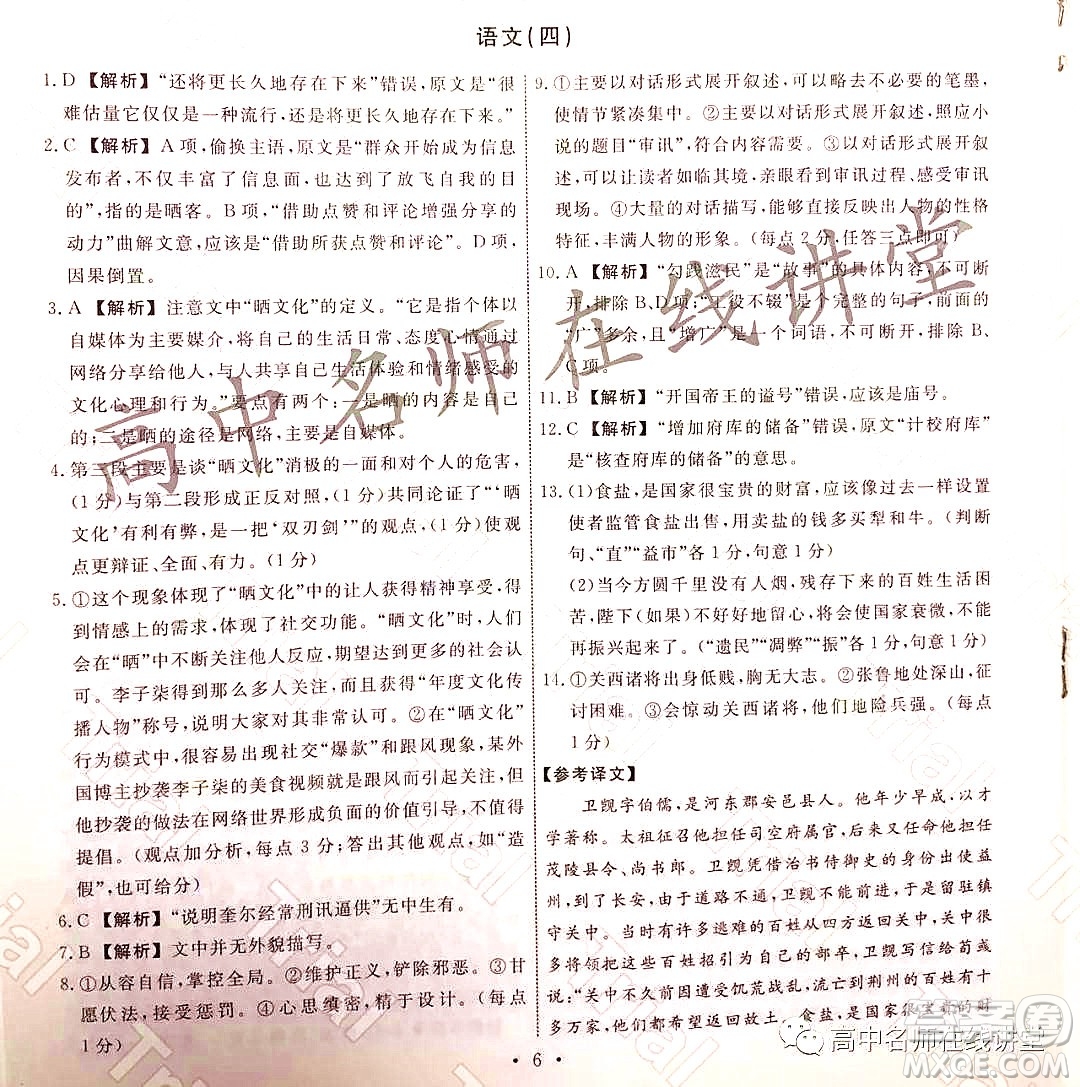 语文(四)
1. D 【解析】“还将更长久地存在下来”错误,原文是“很
难估量它仅仅是一种流行,还是将更长久地存在下来。”
2. C 【解析】A项,偷换主语,原文是“群众开始成为信息
发布者,不仅丰富了信息面,也达到了放飞自我的目
的”,指的是晒客。B项,“借助点赞和评论增强分享的
动力”曲解文意,应该是“借助所获点赞和评论”。D项,
因果倒置。
3. A 【解析】注意文中“晒文化”的定义。“它是指个体以
自媒体为主要媒介,将自己的生活日常、态度心情通过
网络分享给他人,与人共享自己生活体验和情绪感受的
文化心理和行为。”要点有两个:一是晒的内容是自己
的;二是晒的途径是网络,主要是自媒体。
4. 第三段主要是谈“晒文化”消极的一面和对个人的危害,
(1分)与第二段形成正反对照,(1分)共同论证了“‘晒
文化’有利有弊,是一把‘双刃剑’”的观点,(1分)使观
点更辩证、全面、有力。(1分)
5. ①这个现象体现了“晒文化”中的让人获得精神享受,得
到情感上的需求,体现了社交功能。“晒文化”时,人们
在“晒”中不断关注他人反应,期望更多的关注与情感认
可。李子柒得到那么多人关注,并获得“年度文化传
播人物”称号,说明大家对其非常认可。②在“晒文化”
行为模式中,很容易出现社交“爆款”和跟风现象,某外
国博主抄袭李子柒的美食视频就是跟风引起关注,但
他抄袭的做法在网络世界形成负面的价值引导,不值得
提倡。(观点加分析,每点3分;答出其他观点,如“造
假”,也可给分)
6. C 【解析】“说明奎尔经常刑讯逼供”无中生有。
7. B 【解析】文中并无外貌描写。
8. ①从容自信,掌控全局。②维护正义,铲除邪恶。③甘
愿伏法,接受惩罚。④心思缜密,精于设计。(每点
1分)
9. ①主要以对话形式展开叙述,可以略去不必要的笔墨,
使情节紧凑集中。②主要以对话形式展开叙述,照应小
说的题目“审讯”,符合内容需要。③以对话形式展开叙
述,可以让读者如临其境,亲眼看到审讯过程、感受审讯
现场。④大量的对话描写,可以直接反映出人物的性格
特征,丰满人物的形象。(每点2分,任答三点即可)
10. A 【解析】“勾践滋民”是“故事”的具体内容,不可断
开,排除B、D项;“工役不辍”是个完整的句子,前面的
“广”多余,且“增广”是一个词语,不可断开,排除B、
C项。
11. B 【解析】“开国帝王的谥号”错误,应该是庙号。
12. C 【解析】“增加府库的储备”错误,原文“计校府库”
是“核查府库的储备”的意思。
13. (1)食盐,是国家很宝贵的财富,应该像过去一样设置
使者监管食盐出售,用卖盐的钱多买犁和牛。(判断
句、“直”“益市”各1分,句意1分)
(2)当今方圆千里没有人烟,残存下来的百姓生活困
苦,陛下(如果)不好好地留心,将会使国家衰微,不能
再振兴起来。(“遗民”“凋弊”“振”各1分,句意1分)
14. ①关西诸将出身低贱,胸无大志。②张鲁地处深山,征
讨困难。③会惊动关西诸将,他们地险兵强。(每点
1分)
【参考译文】
卫觊字伯儒,是河东郡安邑县人。他年少早成,以才
学著称。太祖征召他担任司空府属官,后来又任命他担任
茂陵县令、尚书郎。卫觊凭借治书侍御史的官职出使益
州,到长安时,由于道路不通,卫觊不能前行,于是留驻镇
守关中。当时有许多逃难的百姓从四方返回关中,关中很
多将领把这些百姓招引来当作自己的部卒,卫觊写信给荀彧
说:“关中不久前因遭受饥荒战乱,流亡到荆州的百姓有十
多万家,他们都希望返回故土。食盐,是国家很宝贵的财
• 6 •
高中名师在线讲堂
高中名师在线讲堂
Trial
MXQE.COM